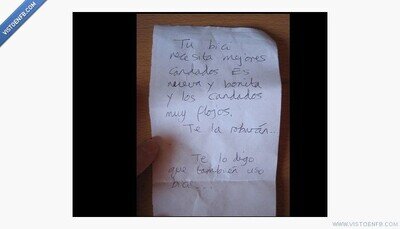 VISTOENFB.COM
Tu bici
necesita mejores
candados Es
nueva y bonita
y los candados
muy flojos.
Te la robarán...
Te lo digo
que también uso
bici...
WWW.VISTOENFB.COM